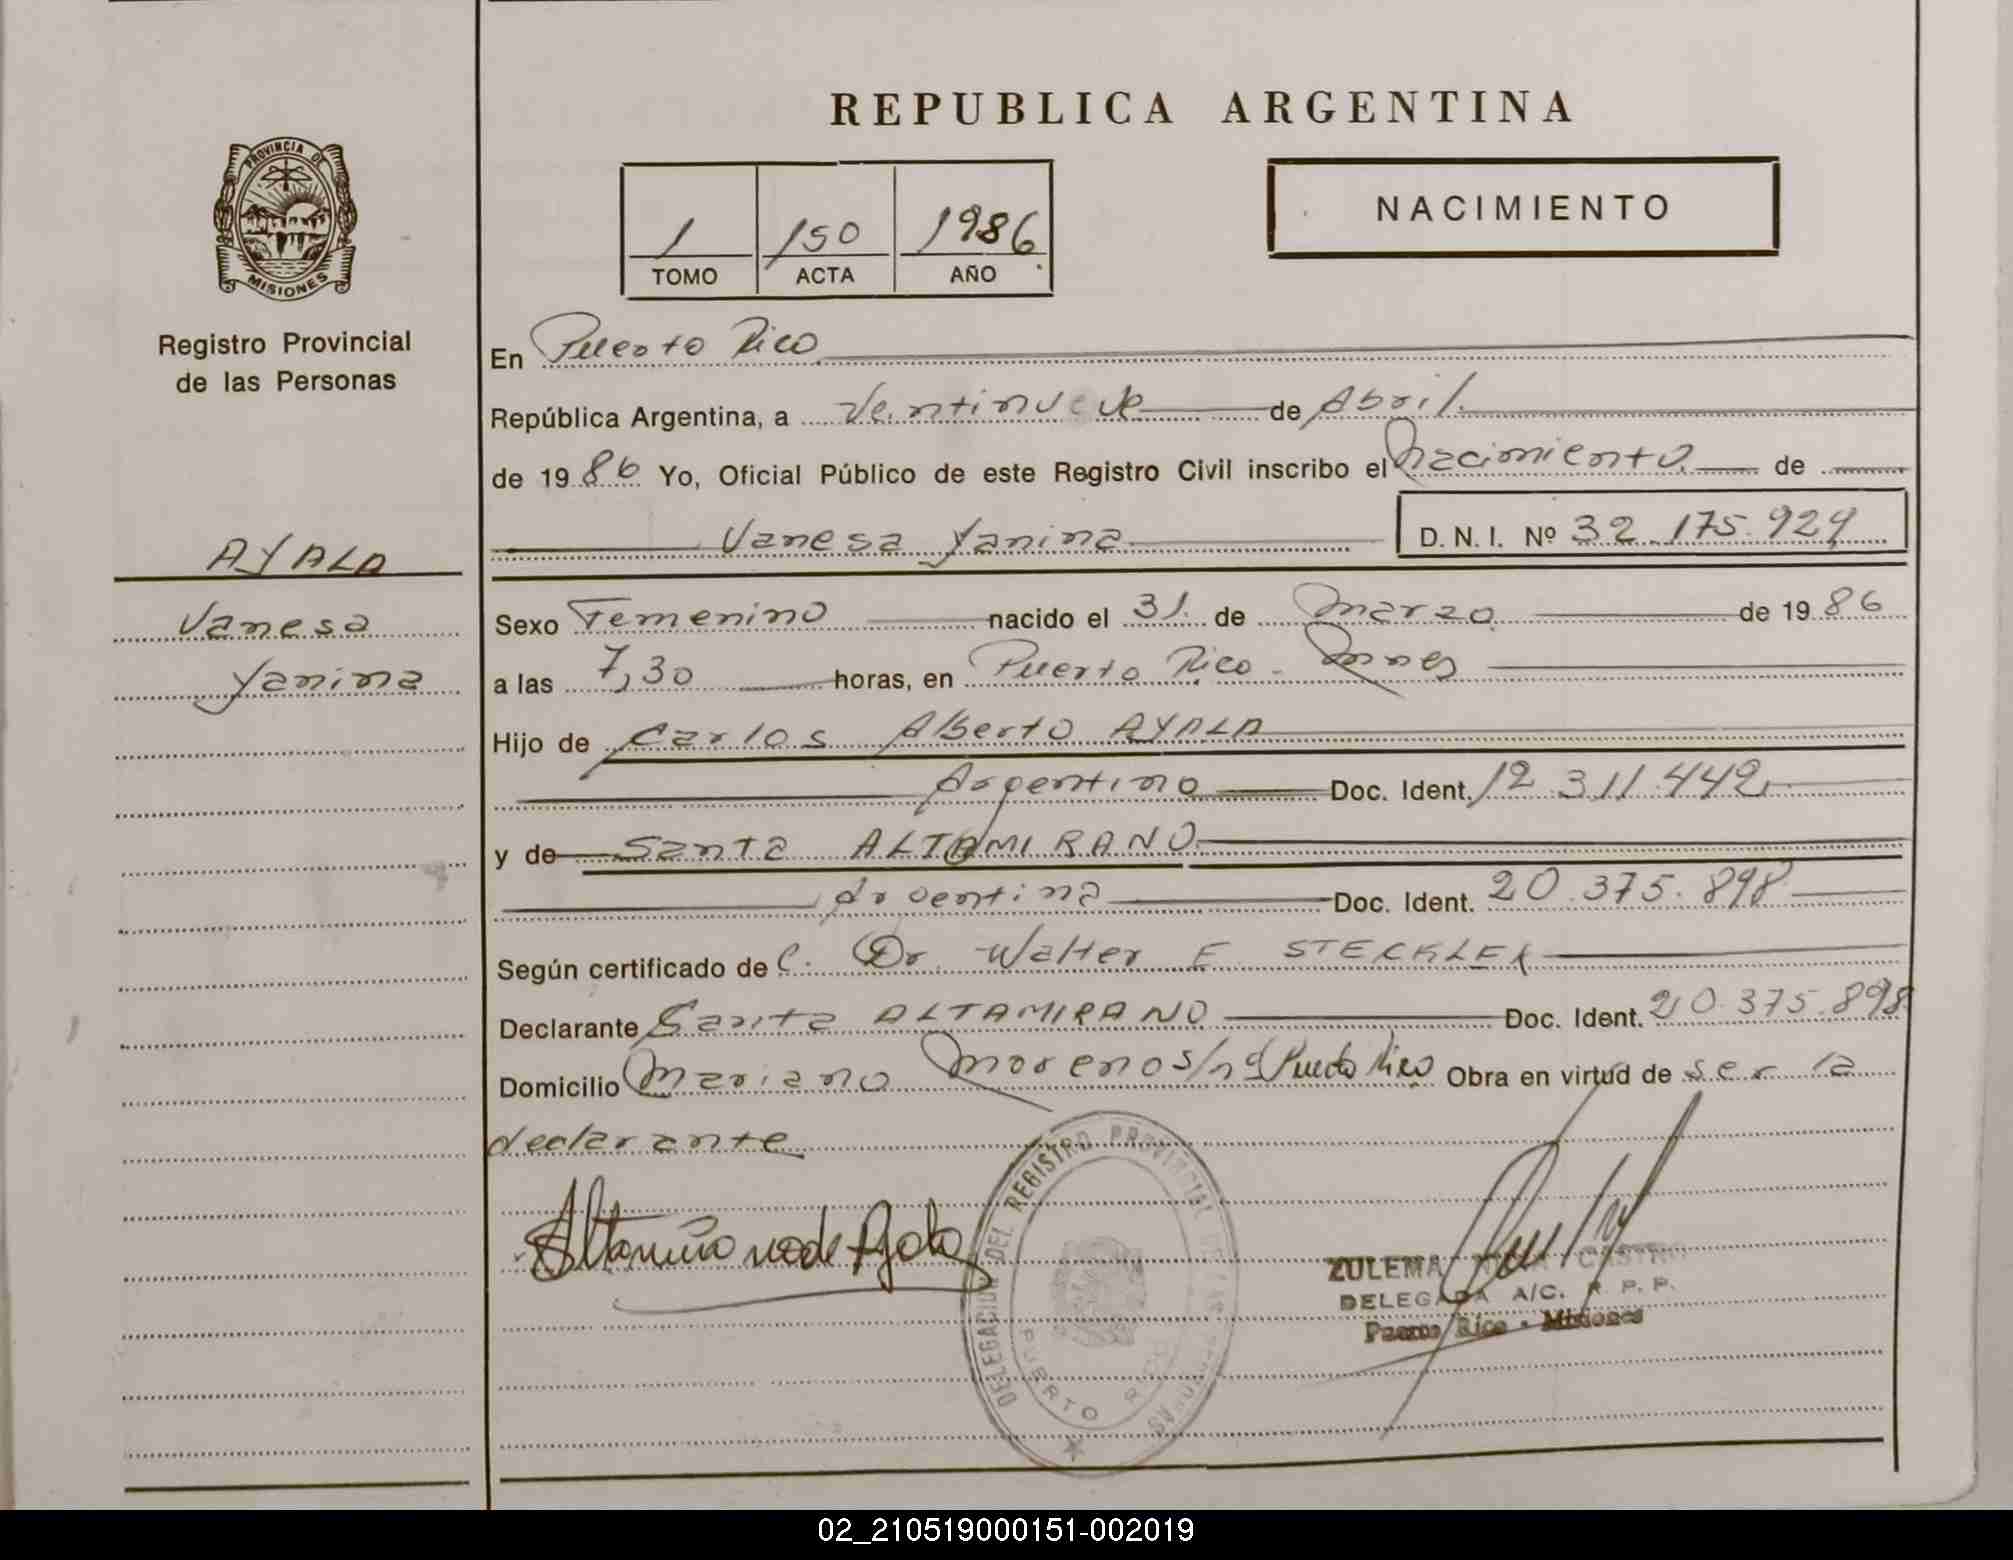 REPUBLICA ARGENTINA
PROVINCIA DE
MISIONES
Registro Provincial
de las Personas
1 150 1986
TOMO ACTA AÑO
NACIMIENTO
En Puerto Rico
República Argentina, a Veintinueve de Abril
de 1986 Yo, Oficial Público de este Registro Civil inscribo el Nacimiento de
Vanesa Yanina D. N. I. Nº 32.175.929
AYALA
Vanesa
Yanina
Sexo Femenino nacido el 31 de Marzo de 1986
a las 7,30 horas, en Puerto Rico - Mnes
Hijo de Carlos Alberto AYALA
Argentino Doc. Ident. 12.311.442
y de Santa ALTAMIRANO
Argentina Doc. Ident. 20.375.898
Según certificado de C. Dr. Walter E. STECKLER
Declarante Santa ALTAMIRANO Doc. Ident. 20.375.898
Domicilio Mariano Moreno s/nº Puerto Rico Obra en virtud de ser la
declarante
Altamirano de Ayala
DELEGACION DEL REGISTRO PROVINCIAL DE LAS PERSONAS
PUERTO RICO
ZULEMA CASTRO
DELEGADA A/C. R. P. P.
Puerto Rico - Misiones
02_210519000151-002019